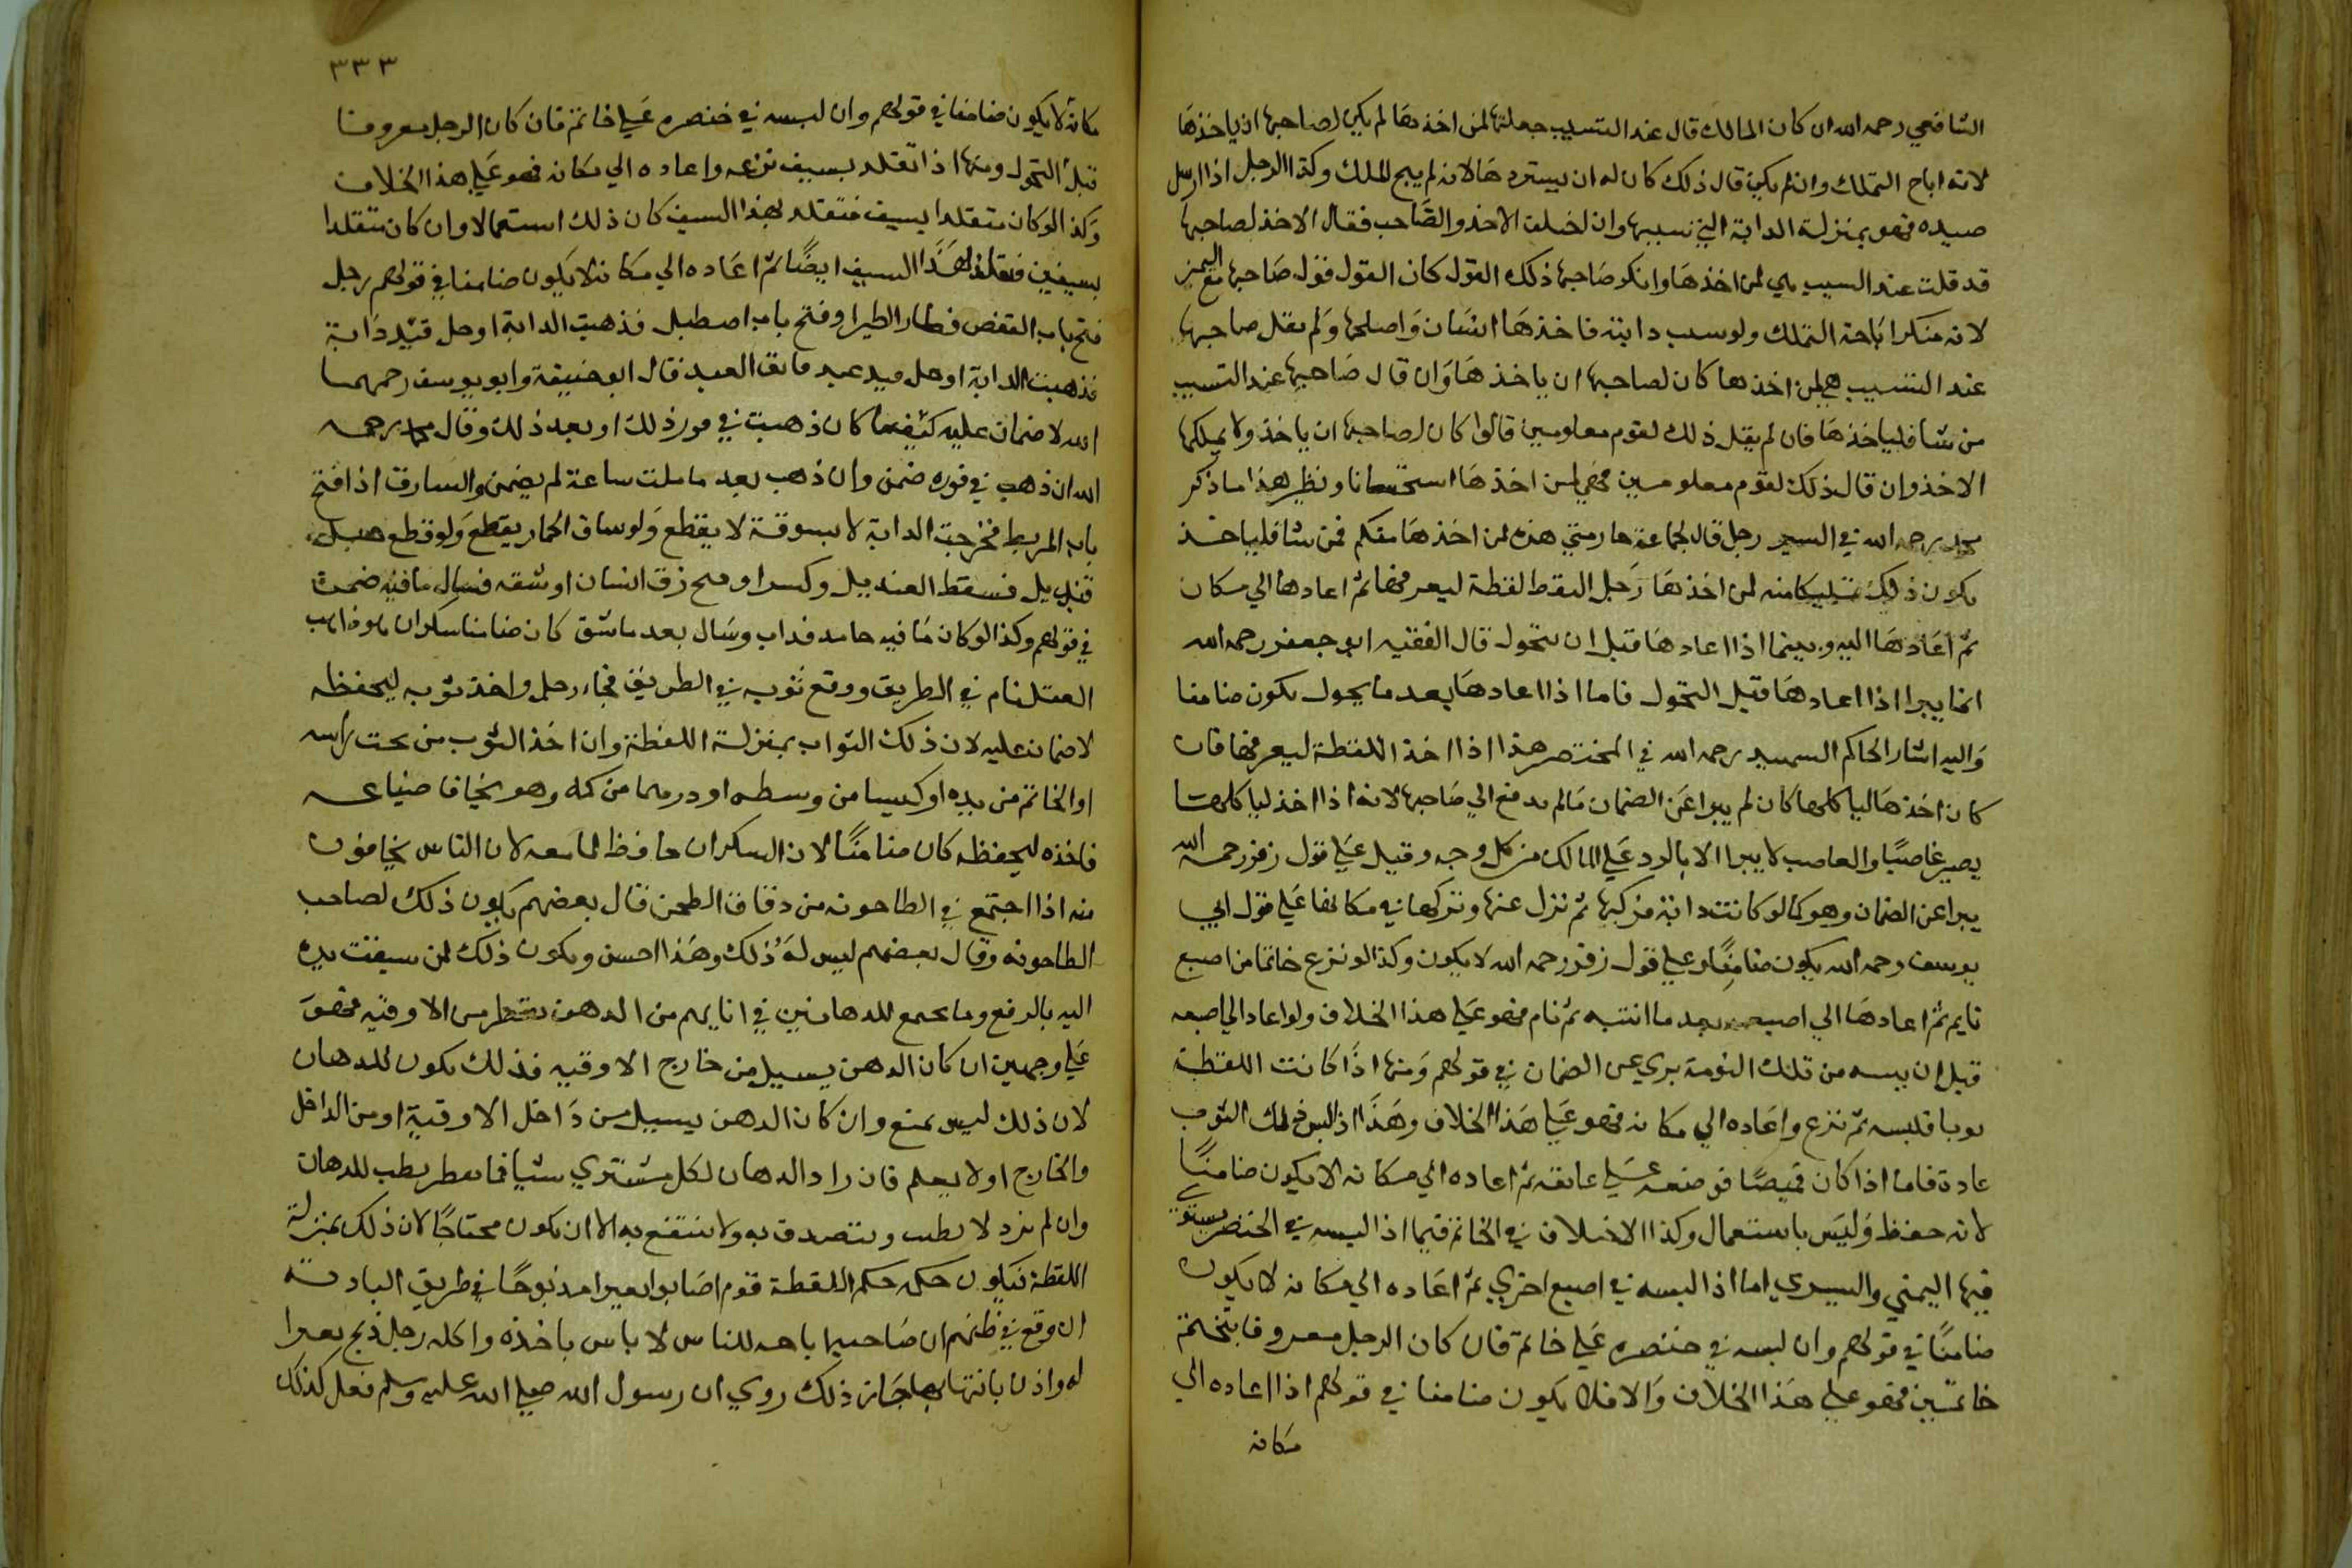 الشافعي رحمه الله ان كان المالك قال عند التسييب جعلتها لمن اخذها لم يكن لصاحبها ان ياخذها
لانه اباح التملك وان لم يكن قال ذلك كان له ان يستردها لانه لم يبح الملك وكذا الرجل اذا ارسل
صيده فهو بمنزلة الدابة التي نسيبها وان اختلف الاخذ والصاحب فقال الاخذ لصاحبها
قد قلت عند السيب هي لمن اخذها وانكر صاحبها ذلك القول كان القول قول صاحبها مع اليمين
لانه منكر اباحة التملك ولو سيب دابته فاخذها انسان واصلحها ولم يقل صاحبها
عند التسييب هي لمن اخذها كان لصاحبها ان ياخذها وان قال صاحبها عند التسييب
من شا فلياخذها فان لم يقل ذلك لقوم معلومين قالوا كان لصاحبها ان ياخذ ولا يملكها
الاخذ وان قال ذلك لقوم معلومين فهي لمن اخذها استحسانا ونظير هذا ما ذكر
محمد رحمه الله في السير رجل قال لجماعة هذه لمن اخذها منكم فمن شا فلياخذ
يكون ذلك تمليكا منه لمن اخذها رجل التقط لقطة ليعرفها ثم اعادها الي مكان
ثم اعادها اليه وبينما اذا اعادها قبل ان يتحول قال الفقيه ابو جعفر رحمه الله
انما يبرا اذا اعادها قبل التحول فاما اذا اعادها بعد ما يحول يكون ضامنا
واليه اشار الحاكم الشهيد رحمه الله في المختصر هذا اذا اخذ اللقطة ليعرفها فان
كان اخذها لياكلها كان لم يبرا عن الضمان ما لم يدفع الي صاحبها لانه اذا اخذ لياكلها
يصير غاصبا والغاصب لا يبرا الا بالرد علي المالك من كل وجه وقيل علي قول زفر رحمه الله
يبرا عن الضمان وهو كما لو كانت دابة فركبها ثم نزل عنها وتركها في مكانها علي قول ابي
يوسف رحمه الله يكون ضامنا وعلي قول زفر رحمه الله لا يكون وكذا لو نزع خاتما من اصبع
نايم ثم اعادها الي اصبعه بعد ما انتبه ثم نام فهو علي هذا الخلاف ولو اعاد الي اصبعه
قبل ان من تلك النومة بري عن الضمان في قولهم ومنها اذا كانت اللقطة
ثوبا فلبسه ثم نزع واعاده الي مكانه فهو علي هذا الخلاف وهذا اذا لبس ذلك الثوب
عادة فاما اذا كان قميصا فوضعه علي عاتقه ثم اعاده الي مكانه لا يكون ضامنا
لانه حفظ وليس باستعمال وكذا الاختلاف في الخاتم فيما اذا البسه في الخنصر يستوي
فيها اليمني واليسري اما اذا البسه في اصبع اخري ثم اعاده الي مكانه لا يكون
ضامنا في قولهم وان لبسه في خنصره علي خاتم فان كان الرجل معروفا بتختم
خاتمين فهو علي هذا الخلاف والا فلا يكون ضامنا في قولهم اذا اعاده الي
مكانه
٣٣٣
مكانه لا يكون ضامنا في قولهم وان لبسه في خنصره علي خاتم فان كان الرجل معروفا
قبل التحول ومنها اذا تقلد بسيف نزعه واعاده الي مكانه فهو علي هذا الخلاف
وكذا لو كان متقلدا بسيف فتقلد بهذا السيف كان ذلك استعمالا وان كان متقلدا
بسيفين فتقلد لهذا السيف ايضا ثم اعاده الي مكانه لا يكون ضامنا في قولهم رجل
فتح باب القفص فطار الطير او فتح باب اصطبل فذهبت الدابة او حل قيد دابة
فذهبت الدابة او حل قيد عبد فابق العبد قال ابو حنيفة وابو يوسف رحمهما
الله لا ضمان عليه كيفما كان ذهبت في فور ذلك او بعد ذلك وقال محمد رحمه
الله ان ذهب في فوره ضمن وان ذهب بعد ما ملت ساعة لم يضمن والسارق اذا فتح
باب المربط فخرجت الدابة لا بسوقه لا يقطع ولو ساق الحمار يقطع ولو قطع حبل
قنديل فسقط القنديل وكسر او فتح زق انسان او شقه فسال ما فيه ضمن
في قولهم وكذا لو كان ما فيه جامد فذاب وسال بعد ما شق كان ضامنا سكران هو ذاهب
العقل نام في الطريق ووقع ثوبه في الطريق فجاء رجل واخذ ثوبه ليحفظه
لا ضمان عليه لان ذلك الثواب بمنزلة اللقطة وان اخذ الثوب من تحت راسه
او الخاتم من يده او كيسا من وسطه او درهما من كمه وهو يخاف ضياعه
فاخذه ليحفظه كان ضامنا لان السكران حافظ لما معه لان الناس يخافون
منه اذا اجتمع في الطاحونة من دقاق الطحن قال بعضهم يكون ذلك لصاحب
الطاحونة وقال بعضهم ليس له ذلك وهذا احسن ويكون ذلك لمن سبقت يده
اليه بالرفع وما يجمع للدهانين في انايهم من الدهن يقطر من الاوقيه فهو
علي وجهين ان كان الدهن يسيل من خارج الاوقيه فذلك يكون للدهان
لان ذلك ليس بمنع وان كان الدهن يسيل من داخل الاوقية او من الداخل
والخارج او لا يعلم فان زاد الدهان لكل مشتري شيا فما يقطر يطب للدهان
وان لم يزد لا يطب ويتصدق به ولا ينتفع به الا ان يكون محتاجا لان ذلك بمنزلة
اللقطة فيكون حكمه حكم اللقطة قوم اصابوا بعيرا مذبوحا في طريق البادية
ان وقع في ظنهم ان صاحبها اباحه للناس لا باس باخذه واكله رجل ذبح بعيرا
له واذن بانتهابها جاز ذلك روي ان رسول الله صلي الله عليه وسلم فعل كذلك